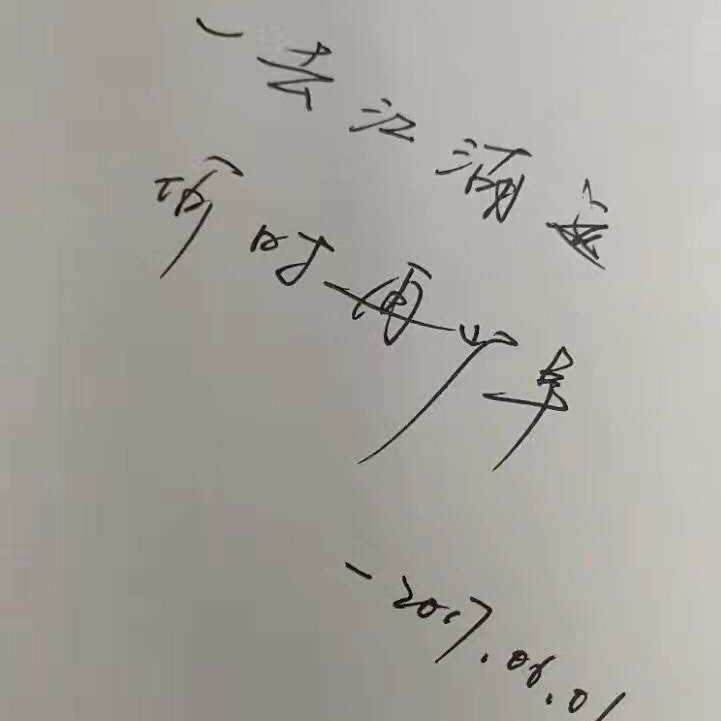 一去江湖远
何时再少年
-2017.08.01